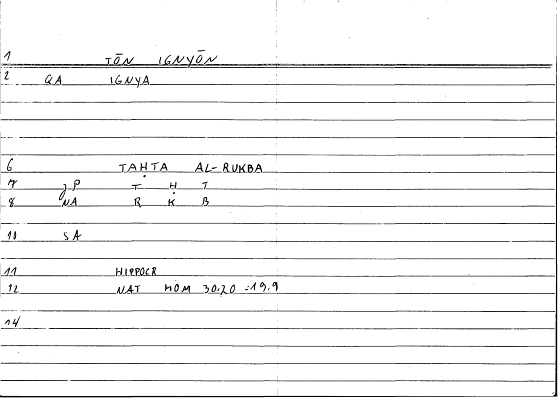 1 TŌN IGNYŌN
2 QA IGNYA
6 TAḤTA AL-RUKBA
7 JP T Ḥ T
8 NA R K B
10 SA
11 HIPPOCR
12 NAT HOM 30.20 = 19.9
14